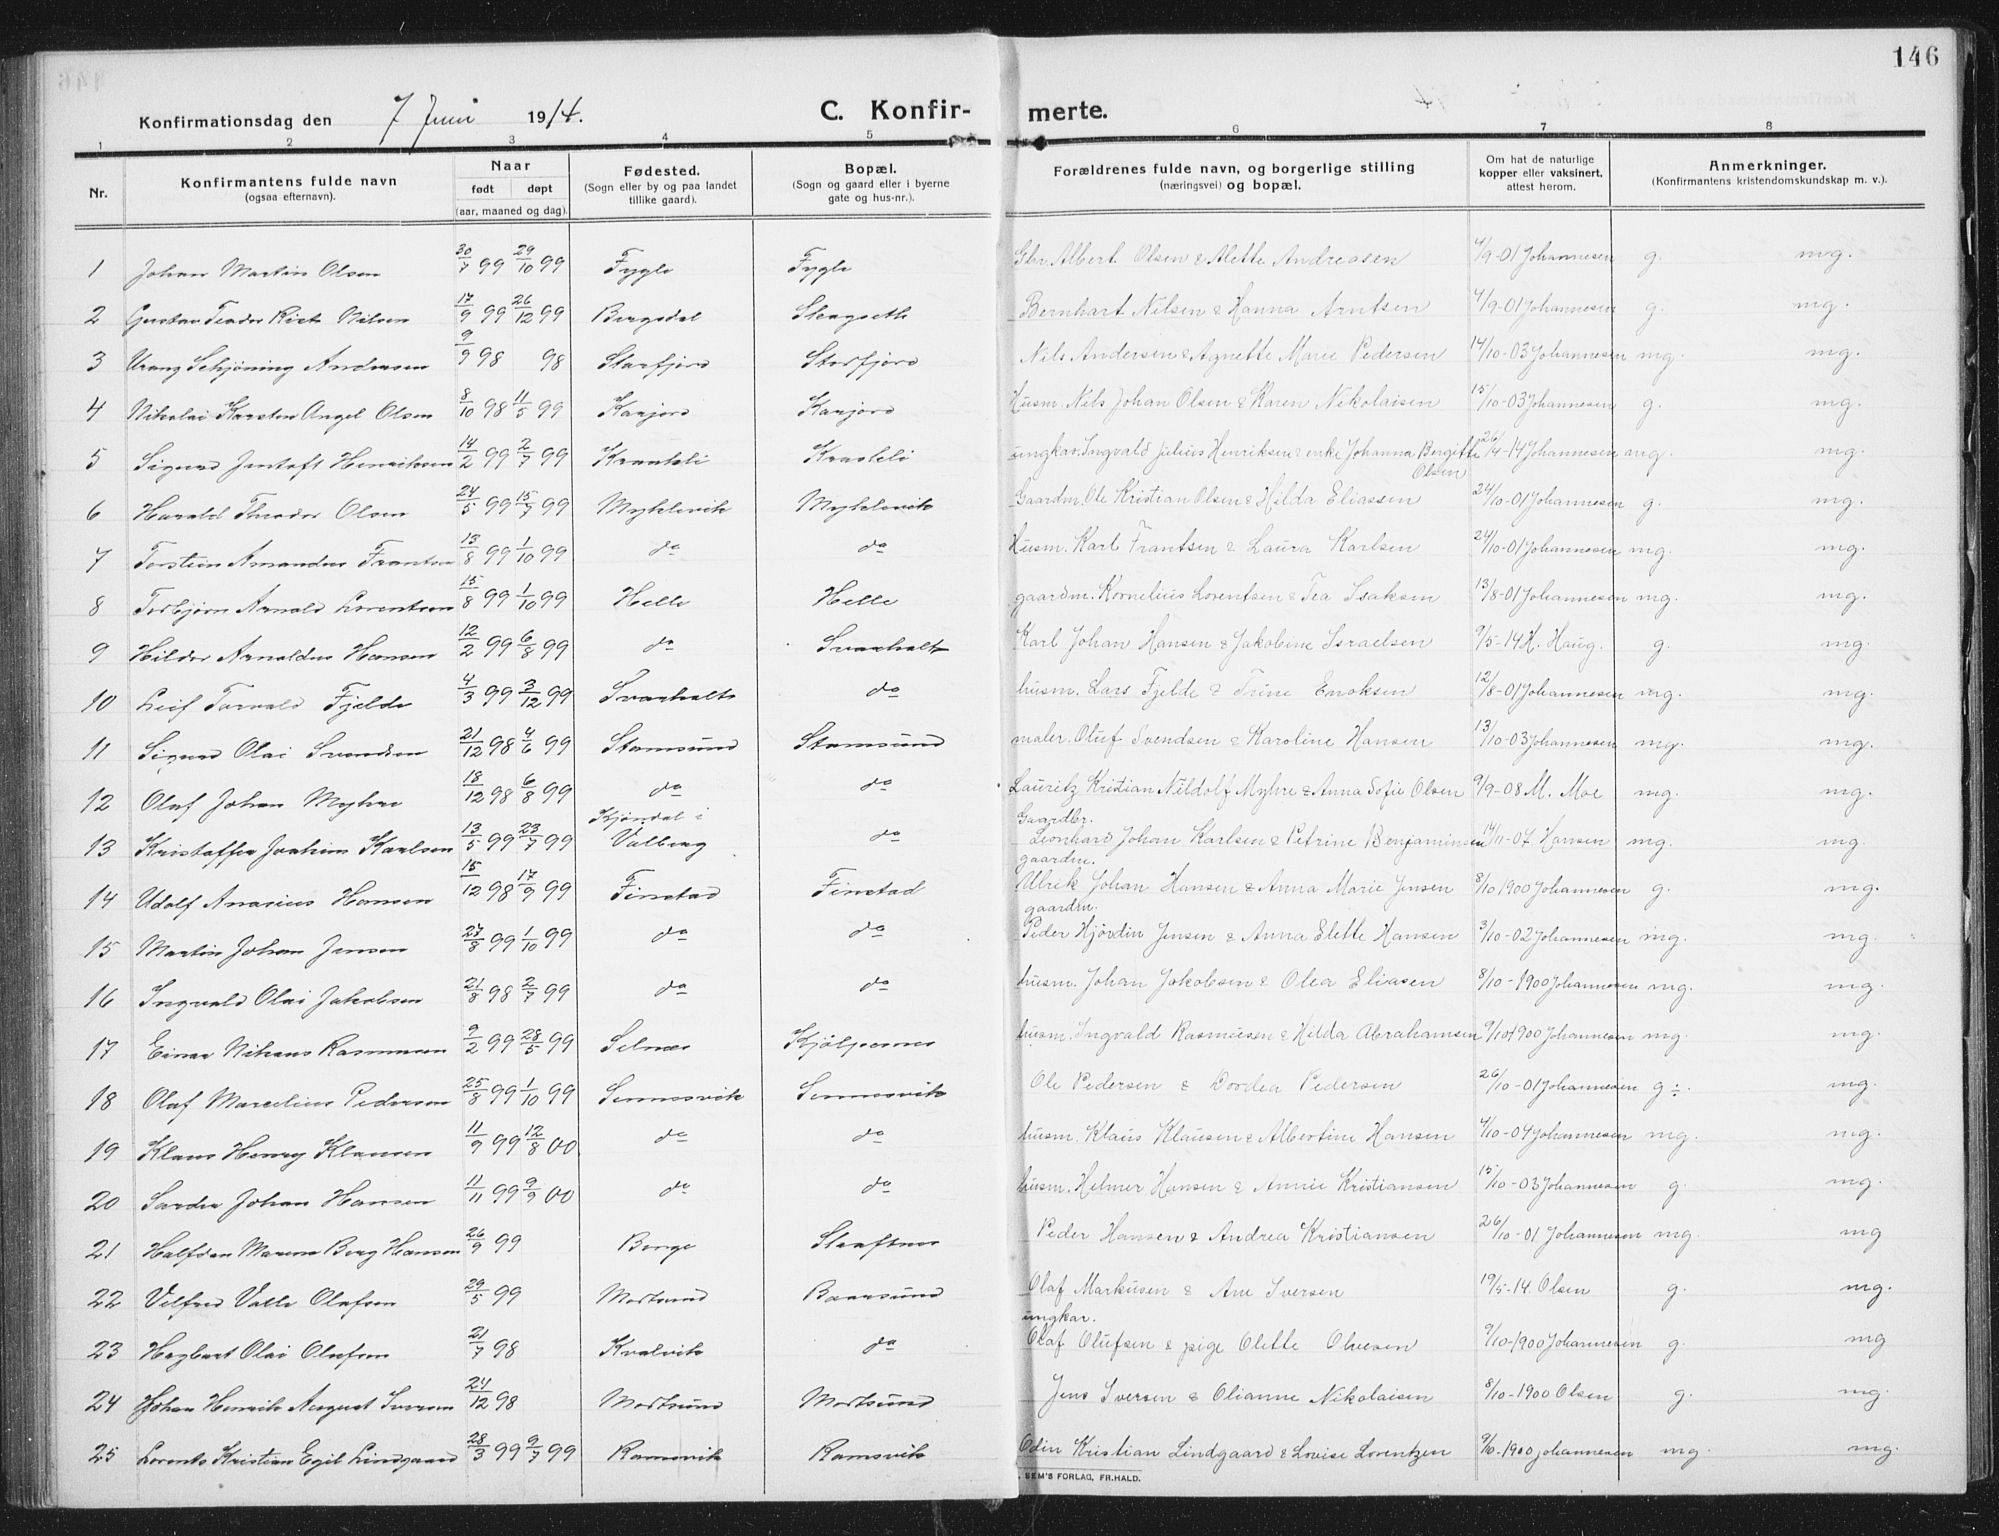 146
Konfirmationsdag den 7 Juni 1914. C. Konfir- merte.
1 2 3 4 5 6 7 8
Nr. Konfirmantens fulde navn (ogsaa efternavn). Naar født døpt (aar, maaned og dag). Fødested. (Sogn eller by og paa landet tillike gaard). Bopæl. (Sogn og gaard eller i byerne gate og hus-nr.). Forældrenes fulde navn, og borgerlige stilling (næringsvei) og bopæl. Om hat de naturlige kopper eller vaksinert, attest herom. Anmerkninger. (Konfirmantens kristendomskundskap m. v.).
1 Johan Martin Olsen 30/7 99 29/10 99 Fygle Fygle Gbr. Albert Olsen & Alette Andreasen 4/9-01 Johannesen g. mg.
2 Gustav Teodor Nilsen 17/9 99 26/12 99 Bergsdal Bernhart Nilsen & Hanna Arntsen 4/9-01 Johannesen g. mg.
3 Schjöning Andersen 9/9 98 98 Storfjord Storfjord Nils Andersen & Agnette Marie Pedersen 14/10-03 Johannesen mg. mg.
4 Nikolai Karsten Angel Olsen 8/10 98 11/5 99 Husm. Nils Johan Olsen & Karen Nikolaisen 15/10-03 Johannesen g. mg.
5 Sigurd Jentoft Henriksen 14/2 99 2/7 99 ungkar. Ingvald Julius Henriksen & enke Johanna Bergitte 26/4-14 Johannesen mg. mg.
Olsen
6 Harald Theodor Olsen 24/5 99 15/7 99 Myklevik Myklevik Gaardm. Ole Kristian Olsen & Hilda Eliassen 24/10-01 Johannesen g. mg.
7 Torstein Amandus Frantsen 13/8 99 1/10 99 do do Husm. Karl Frantsen & Laura Karlsen 24/10-01 Johannesen mg. mg.
8 Torbjørn Arnold Lorentsen 15/8 99 1/10 99 Helle Helle gaardm. Kornelius Lorentsen & Tea Isaksen 13/8-01 Johannesen mg. mg.
9 Hildor Arnoldus Hansen 12/2 99 6/8 99 do Svarholt Karl Johan Hansen & Jakobine Israelsen 9/5-14 H. Haug. g. mg.
10 Leif Torvald Fjelde 4/3 99 3/12 99 Svarholt do husm. Lars Fjelde & Trine Enoksen 12/8-01 Johannesen mg. mg.
11 Sigurd Olai Svendsen 21/12 98 4/6 99 Stamsund Stamsund maler. Oluf Svendsen & Karoline Hansen 13/10-03 Johannesen mg. mg.
12 Olaf Johan Myhre 18/12 98 6/8 99 do do Lauritz Kristian Nildolf Myhre & Anna Sofie Olsen 9/9-08 M. Moe mg. mg.
Kjöndal i Gaardbr.
13 Kristoffer Joakim Karlsen 13/5 99 23/7 99 Valberg do Leonhard Johan Karlsen & Petrine Benjaminsen 14/11-07 Hansen mg. mg.
gaardm.
14 Udolf Anasius Hansen 15/12 98 17/9 99 Finstad Finstad Ulrik Johan Hansen & Anna Marie Jensen 8/10 1900 Johannesen g. mg.
gaardm.
15 Martin Johan Jensen 27/8 99 1/10 99 do do Peder Hjördin Jensen & Anna Elette Hansen 3/10-02 Johannesen mg. mg.
16 Ingvald Olai Jakobsen 21/8 98 2/7 99 do do husm. Johan Jakobsen & Olea Eliasen 8/10-1900 Johannesen mg. mg.
17 Einar Rasmussen 9/2 99 28/5 99 Selnes husm. Ingvald Rasmusen & Hilda Abrahamsen 9/10 1900 Johannesen mg. mg.
18 Olaf Marcelius Pedersen 25/8 99 1/10 99 Sennesvik Sennesvik Ole Pedersen & Dordea Pedersen 26/10-01 Johannesen g ÷ mg.
19 Klaus Henry Klausen 11/9 99 12/8 00 do do husm. Klaus Klausen & Albertine Hansen 4/10-04 Johannesen mg. mg.
20 Johan Hansen 11/11 99 9/9 00 do do husm. Helmer Hansen & Annie Kristiansen 15/10-03 Johannesen g. mg.
21 Halfdan Berg Hansen 26/9 99 Borge Peder Hansen & Andrea Kristiansen 26/10-01 Johannesen mg. mg
22 Vilfred Valle Olafsen 29/5 99 Mortsund Olaf Markusen & Ane Iversen 19/5-14. Olsen g. mg.
ungkar.
23 Olai Olufsen 21/7 98 Kvalvik do Olaf Olufsen & pige Olette Olvesen 9/10-1900 Johannesen g. mg
24 Johan Henrik August Iversen 24/12 98 Mortsund Mortsund Jens Iversen & Olianne Nikolaisen 8/10-1900 Olsen g. mg.
25 Lorents Kristian Egil Lindgaard 28/3 99 9/7 99 Ramsvik Ramsvik Odin Kristian Lindgaard & Lovise Lorentzen 9/10-1900 Johannesen mg. mg.
SEM'S FORLAG, FR.HALD.